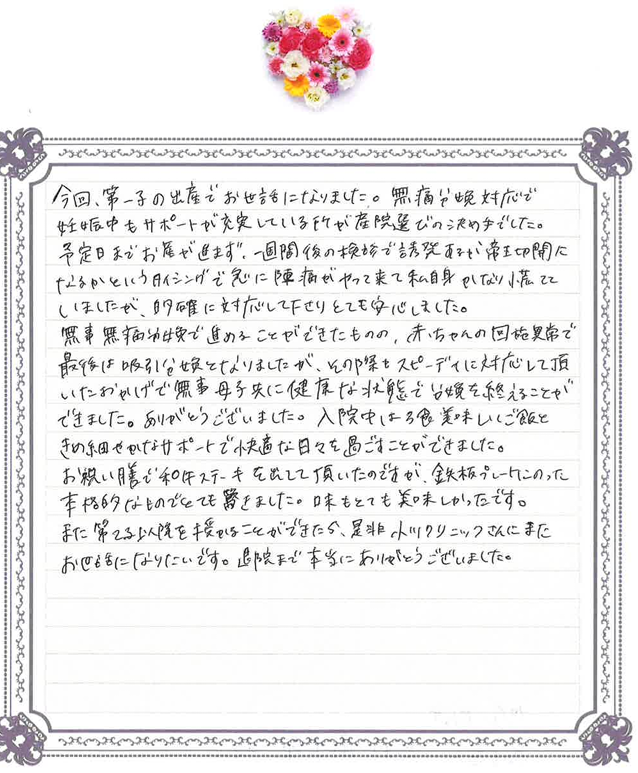 今回、第一子の出産でお世話になりました。無痛分娩対応で
妊娠中もサポートが充実している所が産院選びの決め手でした。
予定日までお産が進まず、一週間後の検診で誘発あるが帝王切開に
なるかというタイミングで急に陣痛がやって来て私自身かなり慌てて
しましたが、的確に対応して下さりとても安心しました。
無事無痛分娩で進めることができたものの、赤ちゃんの回旋異常で
最後は吸引分娩となりましたが、その際もスピーディに対応して頂
いたおかげで無事母子共に健康な状態で分娩を終えることが
できました。ありがとうございました。入院中は3食美味しいご飯と
きめ細やかなサポートで快適な日々を過ごすことができました。
お祝い膳で和牛ステーキを出して頂いたのですが、鉄板プレートにのった
本格的なものでとても驚きました。味もとても美味しかったです。
また第2子を授かることができたら、是非小川クリニックさんにまた
お世話になりたいです。退院まで本当にありがとうございました。